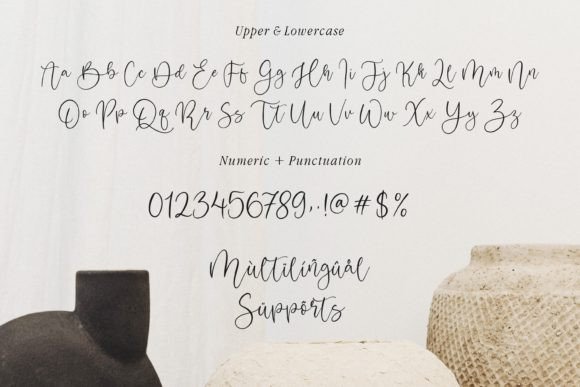 Upper & Lowercase
Aa Bb Cc Dd Ee Ff Gg Hh Ii Jj Kk Ll Mm Nn
Oo Pp Qq Rr Ss Tt Uu Vv Ww Xx Yy Zz
Numeric + Punctuation
0123456789,.!@#$%
Mùltilíñgûål
Süppôrts